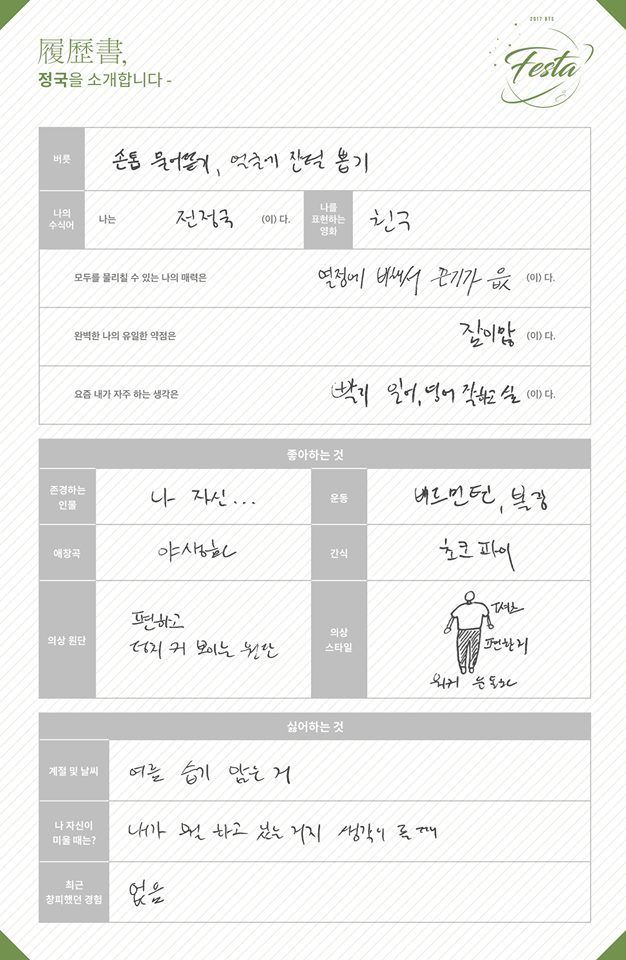 2017 BTS
Festa
履歷書,
정국을 소개합니다 -
버릇
손톱 물어뜯기, 얼굴에 잔털 뽑기
나의
수식어
나는 전정국 (이) 다.
나를
표현하는
영화
친구
모두를 물리칠 수 있는 나의 매력은
열정에 비해서 끈기가 없 (이) 다.
완벽한 나의 유일한 약점은
잠이많 (이) 다.
요즘 내가 자주 하는 생각은
빨리 일어, 영어 잘하고 싶 (이) 다.
좋아하는 것
존경하는
인물
나 자신...
운동
배드민턴, 볼링
애창곡
야생화
간식
초코파이
의상 원단
편하고
커 보이는 원단
의상
스타일
티셔츠
편한
워커
싫어하는 것
계절 및 날씨
여름 습기 많은 거
나 자신이
미울 때는?
내가 뭘 하고 있는 거지 생각이 들 때
최근
창피했던 경험
없음